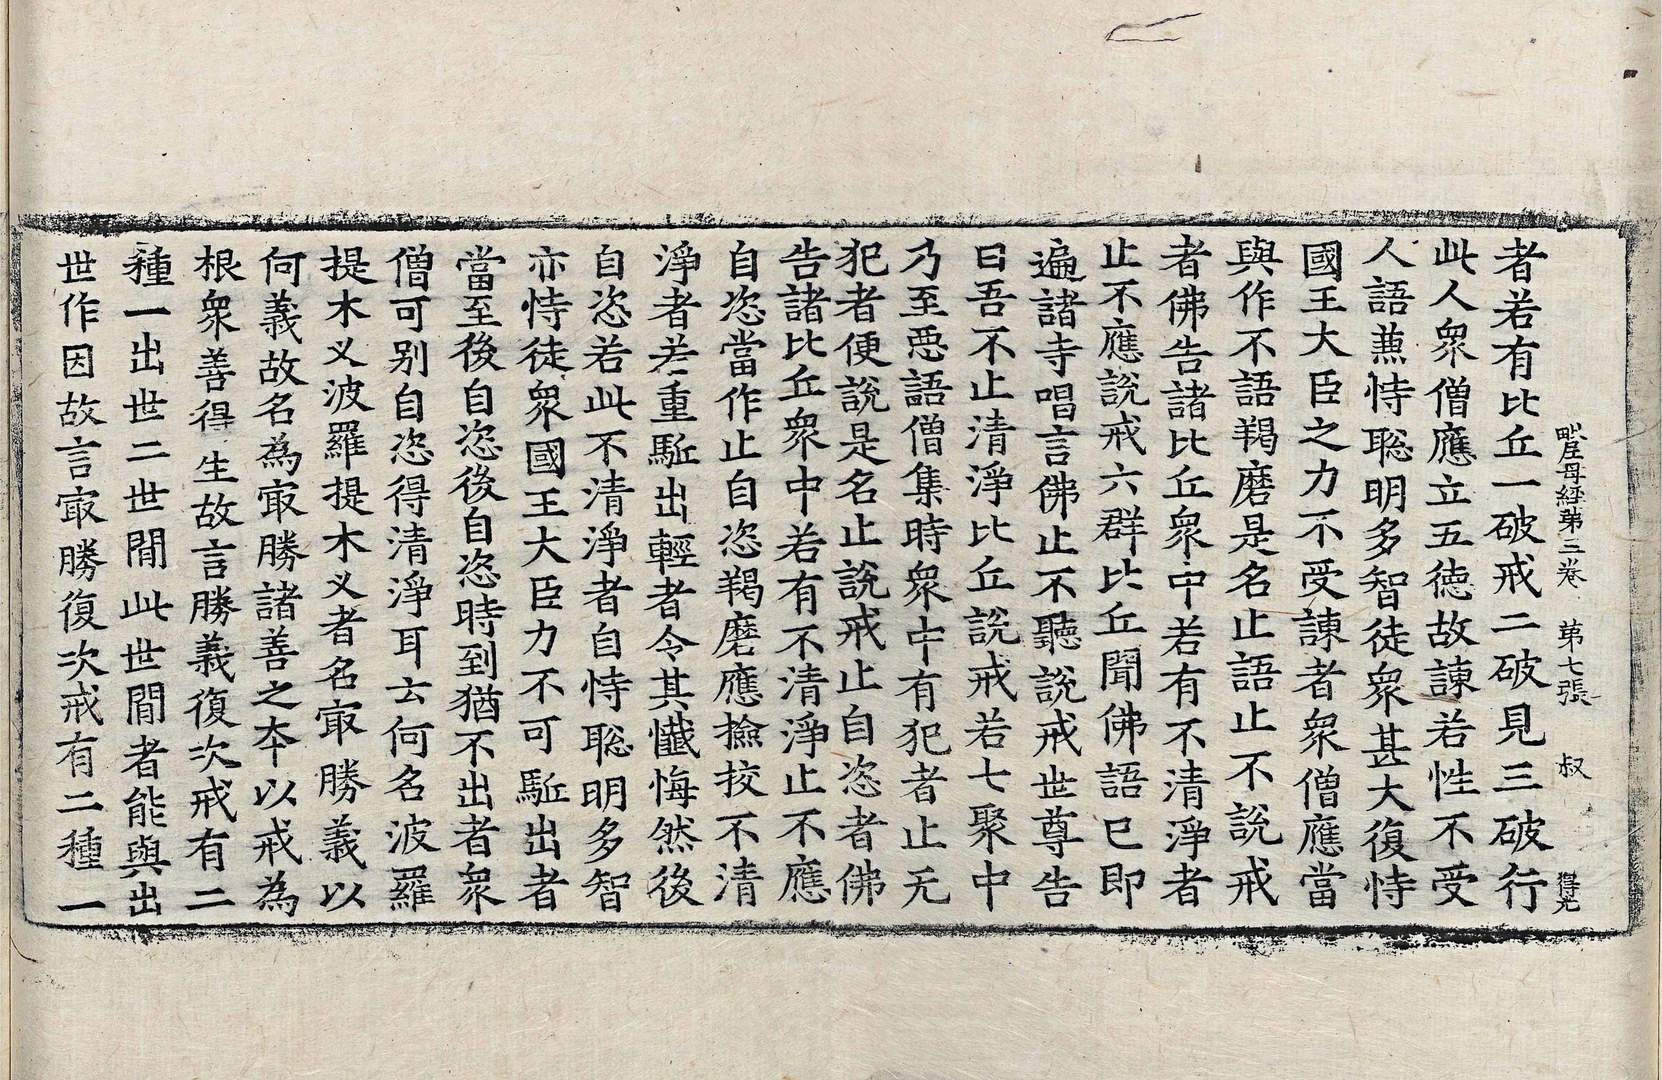 毗尼母經第二卷 第七張 叔 得光
者若有比丘一破戒二破見三破行
此人衆僧應立五徳故諫若性不受
人語䔥恃聡明多智徒衆甚大復恃
國王大臣之力不受諫者衆僧應當
與作不語羯磨是名止語止不說戒
者佛告諸比丘衆中若有不清淨者
止不應說戒六群比丘聞佛語已即
遍諸寺唱言佛止不聽說戒世尊告
曰吾不止清淨比丘說戒若七聚中
乃至惡語僧集時衆中有犯者止无
犯者便說是名止說戒止自恣者佛
告諸比丘衆中若有不清淨止不應
自恣當作止自恣羯磨應撿挍不清
淨者若重駈出輕者令其懺悔然後
自恣若此不清淨者自恃聡明多智
亦恃徒衆國王大臣力不可駈出者
當至後自恣後自恣時到猶不出者衆
僧可别自恣得清淨耳云何名波羅
提木义波羅提木义者名㝡勝義以
何義故名為㝡勝諸善之本以戒為
根衆善得生故言勝義復次戒有二
種一出世二世間此世間者能與出
世作因故言㝡勝復次戒有二種一